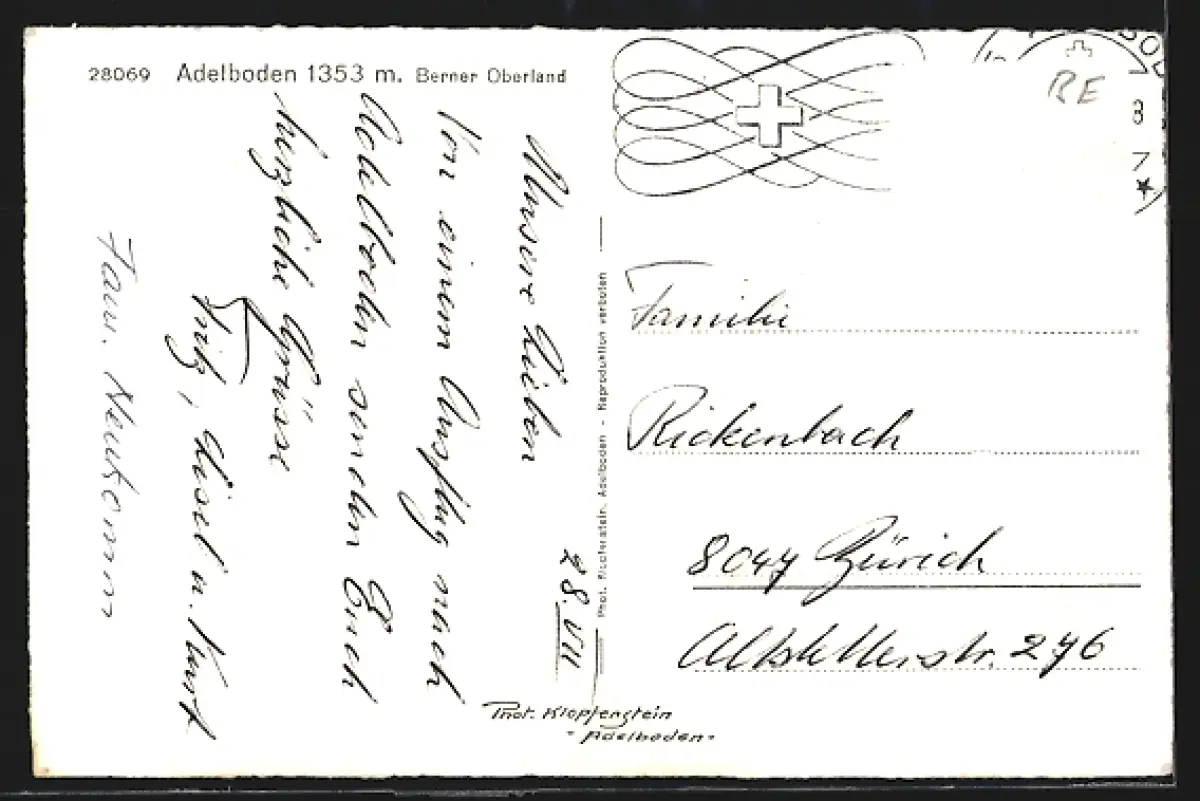 28069 Adelboden 1353 m. Berner Oberland
28. VII
Unsere Lieben
Von einem Ausflug nach
Adelboden senden Euch
herzliche Grüsse
Fritz, Lisel u. Kurt
Fam. Neukomm
Phot. Klopfenstein, Adelboden - Reproduktion verboten
BE
Familie
Rickenbach
8047 Zürich
Altstetterstr. 276
Phot. Klopfenstein
- Adelboden -